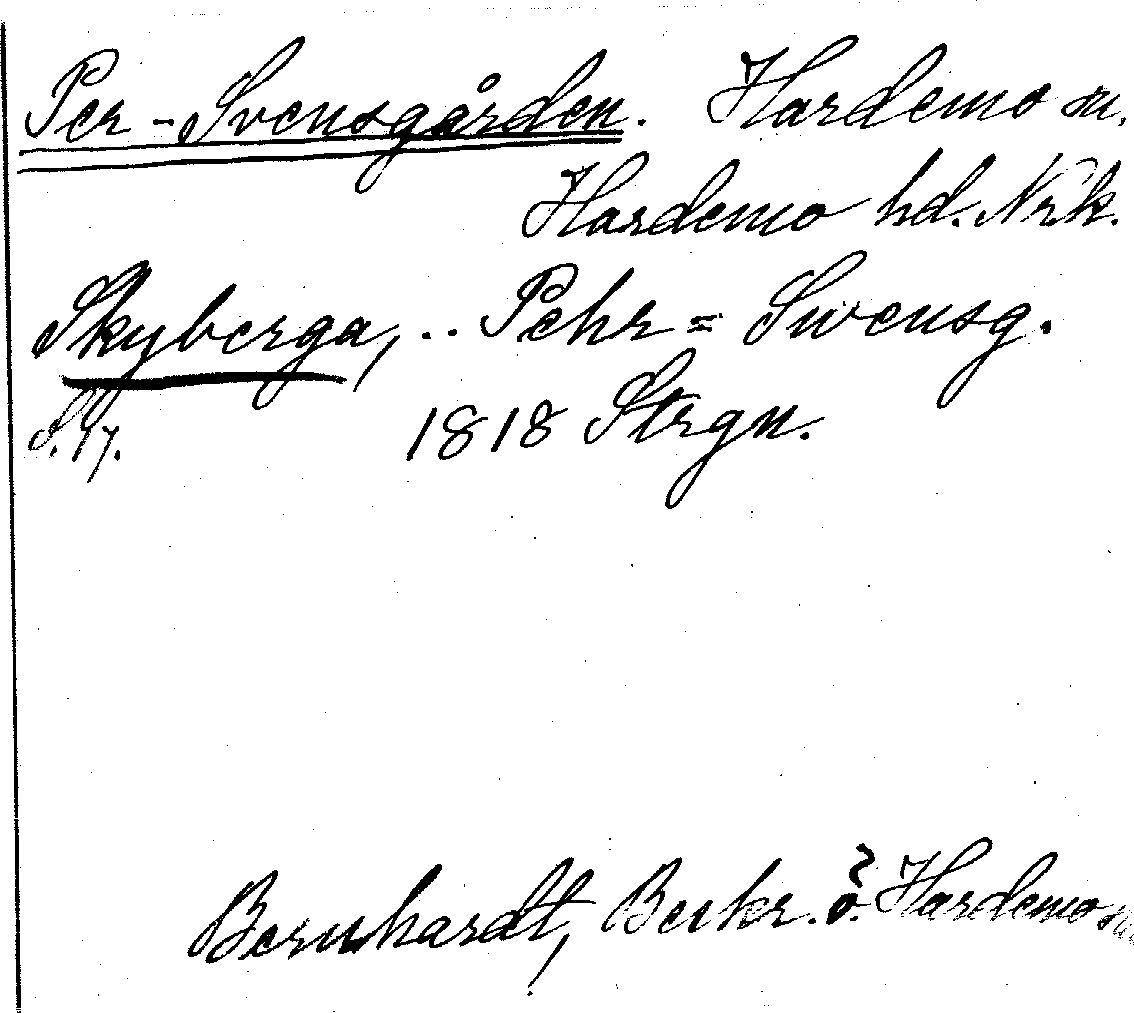 Per-Svensgården. Hardemo sn.
Hardemo hd. Nrk.
Skyberga, .. Pehr = Swensg.
S. 17. 1818 Strgn.
Bernhardt, Beskr. ö. Hardemo sn